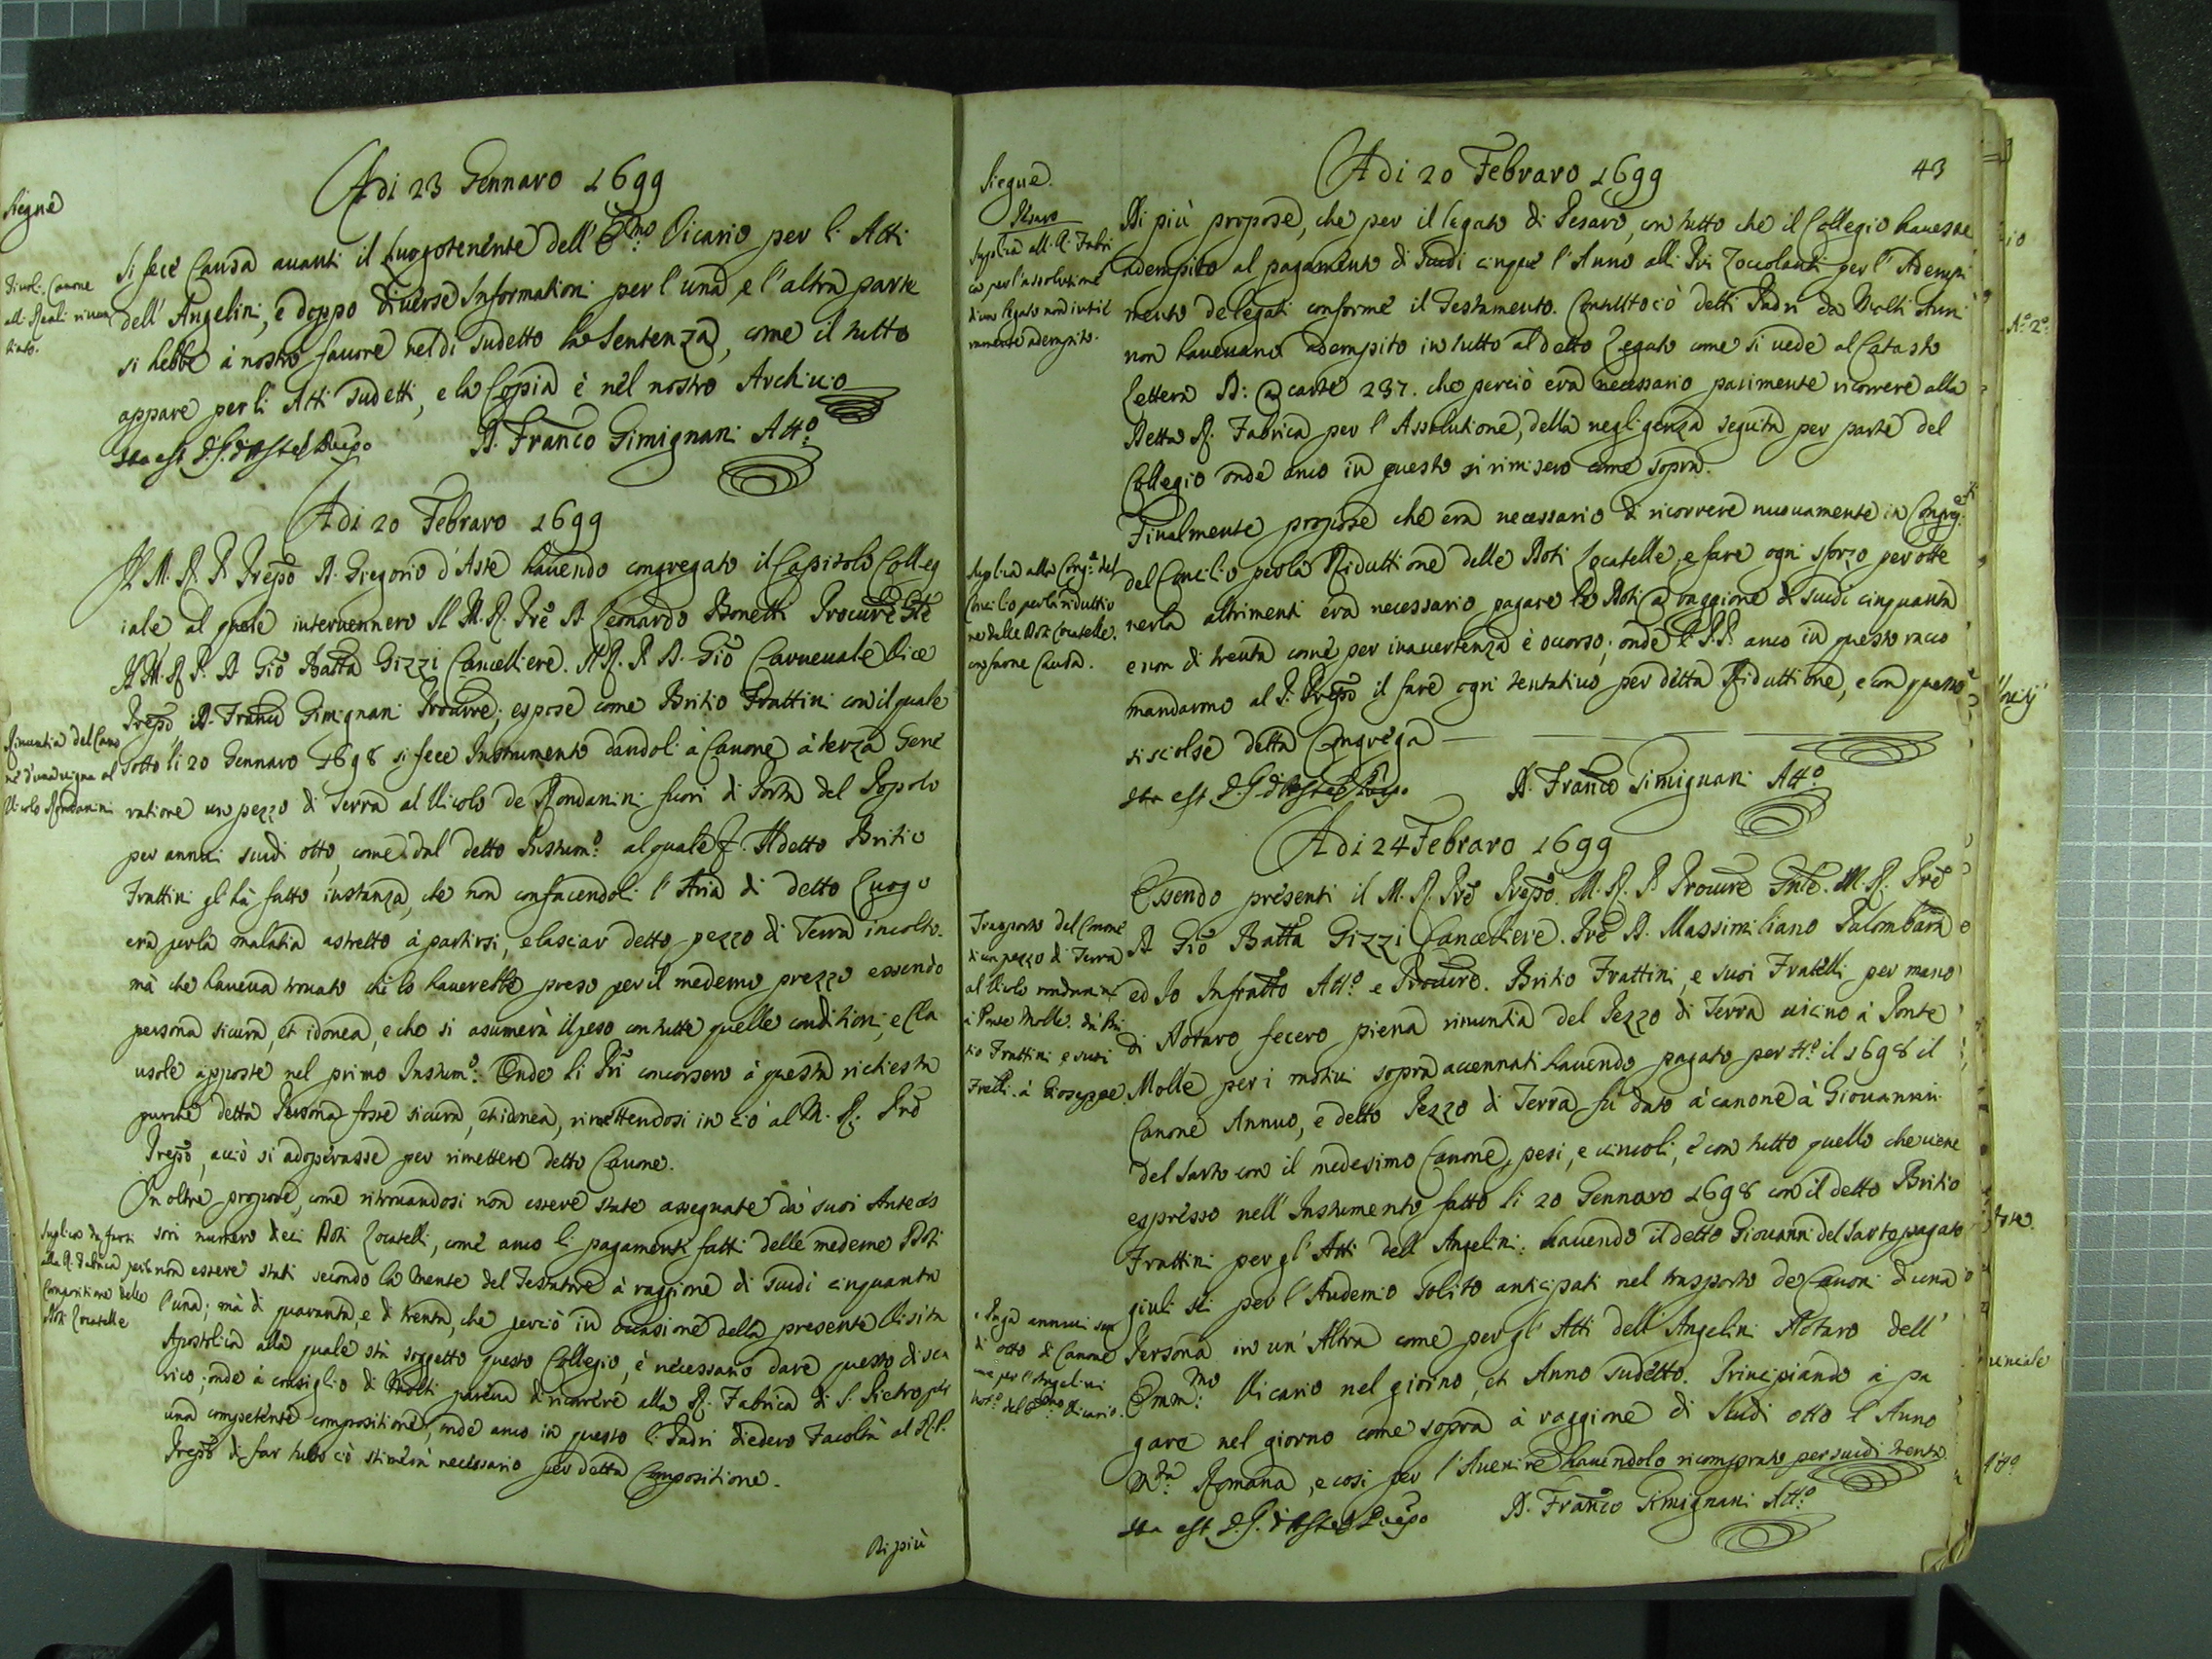 Siegue
Adi 23 Gennaro 1699
Tivoli. Canone
alli Reali rinun
tiato.
Si fece Causa auanti il Luogotenente dell' Em.mo Vicario per li Atti
dell' Angelini, e doppo diuerse Informationi per l'una, e l'altra parte
si hebbe à nostro fauore nel dì sudetto la Sentenza, come il tutto
appare per li Atti sudetti, e la Copia è nel nostro Archiuio
Ita est D. G. d'Aste Prepo
D. Franco Gimignani Att.o
Adi 20 Febraro 1699
Il M. R. P. Prepo D. Gregorio d'Aste hauendo congregato il Capitolo Colleg
iale al quale interuennero Il M. R. Pre D. Leonardo Bonetti Procure Gle
Il M. R. P. D. Gio Batta Gizzi Cancelliere. Il R. P. D. Gio Carneuale Vice
Prepo, D. Franco Gimignani Procurre; espose come Britio Frattini con il quale
Rinuntia del Cano
ne d'una uigna al
Vicolo Rondanini
sotto li 20 Gennaro 1698 si fece Instrumento dandoli à Canone à terza Gene
ratione un pezzo di Terra al Vicolo de Rondanini fuori di Porta del Popolo
per annui scudi otto, come dal detto Instrum.o al quale &. Il detto Britio
Frattini gl'hà fatto instanza, che non confacendoli l'Aria di detto Luogo
era per la malatia astretto à partirsi, e lasciar detto pezzo di Terra incolto.
mà che haueua trouato chi lo hauerebbe preso per il medemo prezzo essendo
persona sicura, et idonea, e che si asumerà il peso con tutte quelle conditioni, e Cla
usole apposte nel primo Instrum.o: Onde li Pri concorsero à questa richiesta
purche detta Persona fosse sicura, et idonea, rimettendosi in ciò al M. R. Pre
Prepo, acciò si adoperasse per rimettere detto Canone.
In oltre propose, come ritrouandosi non essere state assegnate dà suoi Anteces
Suplica da farsi
alla R. Fabrica per la
Compositione delle
Doti Locatelle
sori numero dieci Doti Locatelli, come anco li pagamenti fatti delle medeme Doti
non essere stati secondo la mente del Testatore à raggione di scudi cinquanta
l'una; mà di quaranta, e di trenta, che perciò in occasione della presente Visita
Apostolica alla quale stà soggetto questo Collegio, è necessario dare questo disca
rico; onde à consiglio di Molti pareua di ricorrere alla R. Fabrica di S. Pietro per
una competente compositione, onde anco in questo li Padri diedero Facoltà al R. P.
Prepo di far tutto ciò stimerà necessario per detta Compositione.
Di più
Siegue
Adi 20 Febraro 1699
43
Pesaro
Suplica all. R. Fabri
ca per l'assolutione
d'un legato non intie
ramente adempito.
Di più propose, che per il legato di Pesaro, con tutto che il Collegio hauesse
adempito al pagamento di Scudi cinque l'Anno alli Pri Zoccolanti per l'Adempi
mento de legati conforme il Testamento. Contuttociò detti Padri da Molti Anni
non haueuano adempito in tutto al detto Legato come si uede al Catasto
Lettera D: a carte 237. che perciò era necessario parimente ricorrere alla
detta R. Fabrica per l'Assolutione, della negligenza seguita per parte del
Collegio onde anco in questo si rimisero come sopra.
Finalmente propose che era necessario di ricorrere nuouamente in Congre.
Suplica alla Cong.e del
Concilio per la riduttio
ne delle Doti Locatelle.
con fauore Causa.
del Concilio per la Riduttione delle Doti Locatelle, e fare ogni sforzo per otte
nerla altrimenti era necessario pagare le Doti a raggione di scudi cinquanta
e non di trenta come per inauertenza è occorso; onde li P.P. anco in questo racco
mandarono al P. Prepo il fare ogni tentatiuo per detta Riduttione, e con questo
si sciolse detta Congrega
Ita est D. G. d'Aste Prepo
D. Franco Gimignani Att.o
Adi 24 Febraro 1699
Essendo presenti il M. R. Pre Prepo. M. R. P. Procure Gnle. M. R. Pre
Trasporto del Canone
di un pezzo di Terra
al Vicolo rondanini
à Ponte Molle. dà Bri
tio Frattini, e suoi
Fratelli. à Gioseppe.
D. Gio Batta Gizzi Cancelliere. Pre D. Massimiliano Palombara
ed Io Infratto Att.o e Procurre. Britio Frattini, e suoi Fratelli per mano
di Notaro fecero piena rinuntia del Pezzo di Terra uicino à Ponte
Molle per i motiui sopra accennati hauendo pagato per tt.o il 1698 il
Canone Annuo, e detto Pezzo di Terra fù dato à canone à Giouanni
del Sarto con il medesimo Canone, pesi, e uincoli, e con tutto quello che uiene
espresso nell'Instrumento fatto li 20 Gennaro 1698 con il detto Britio
Frattini per gl'Atti dell'Angelini; hauendo il detto Giouanni del Sarto pagato
giuli sei per l'Audemio solito anticipati nel trasporto de Canoni d'una
Paga annui scu
di otto di Canone
per l'Angelini
Not.o del Em.mo Vicario.
Persona in un'Altra come per gl'Atti dell'Angelini Notaro dell'
Emm.mo Vicario nel giorno, et Anno sudetto. Principiando à pa
gare nel giorno come sopra à raggione di Scudi otto l'Anno
M.ta Romana, e così per l'Auenire hauendolo ricomprato per scudi trenta
Ita est D. G. d'Aste Prepo
D. Franco Gimignani Att.o